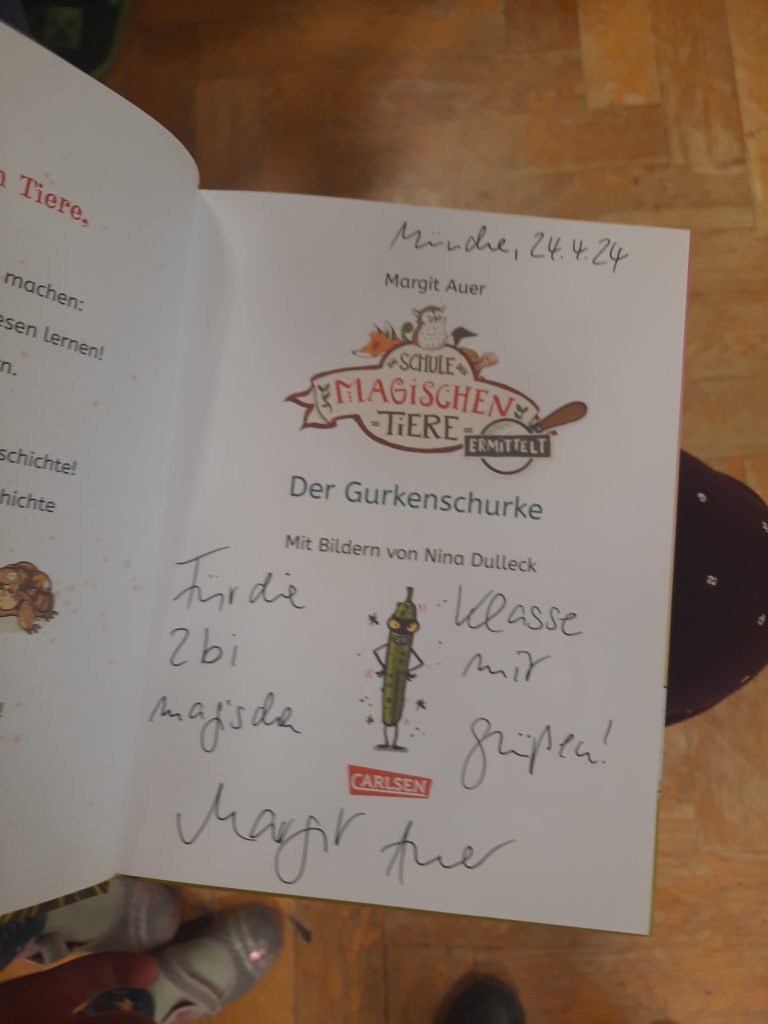 n Tiere,
machen:
esen lernen!
n.
schichte!
hichte
!
München, 24.4.24
Margit Auer
SCHULE
MAGISCHEN
TIERE
ERMITTELT
Der Gurkenschurke
Mit Bildern von Nina Dulleck
Für die Klasse
2bi mit
magischen Grüßen!
CARLSEN
Margit Auer